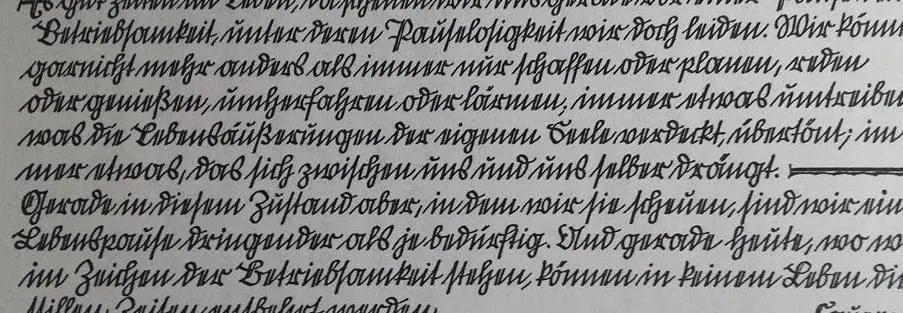 Es gibt Zeiten im Leben, da scheuen wir uns gerade vor einer
Betriebsamkeit, unter deren Pauselosigkeit wir doch leiden. Wir könn
garnicht mehr anders als immer nur schaffen oder planen, reden
oder genießen, umherfahren oder lärmen; immer etwas umtreiben
was die Lebensäußerungen der eigenen Seele verdeckt, übertönt; im
mer etwas, das sich zwischen uns und uns selber drängt.
Gerade in diesem Zustand aber, in dem wir sie scheuen, sind wir ein
Lebenspause dringender als je bedürftig. Und gerade heute, wo w
im Zeichen der Betriebsamkeit stehen, können in keinem Leben die
stillen Zeiten entbehrt werden.